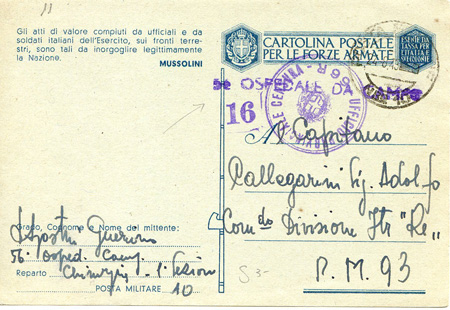 Gli atti di valore compiuti da ufficiali e da
soldati italiani dell'Esercito, sui fronti terre-
stri, sono tali da inorgoglire legittimamente
la Nazione.
MUSSOLINI
CARTOLINA POSTALE
PER LE FORZE ARMATE
OSPEDALE DA CAMPO
16
UFFICIO CENSURA
Al Capitano
Pallegarini Sig. Adolfo
Com.do Divisione Ftr "Re"
P.M. 93
Grado, Cognome e Nome del mittente:
56. Osped. Camp.
Reparto Chirurgia - 1ª Sezione
POSTA MILITARE 10
S 3-